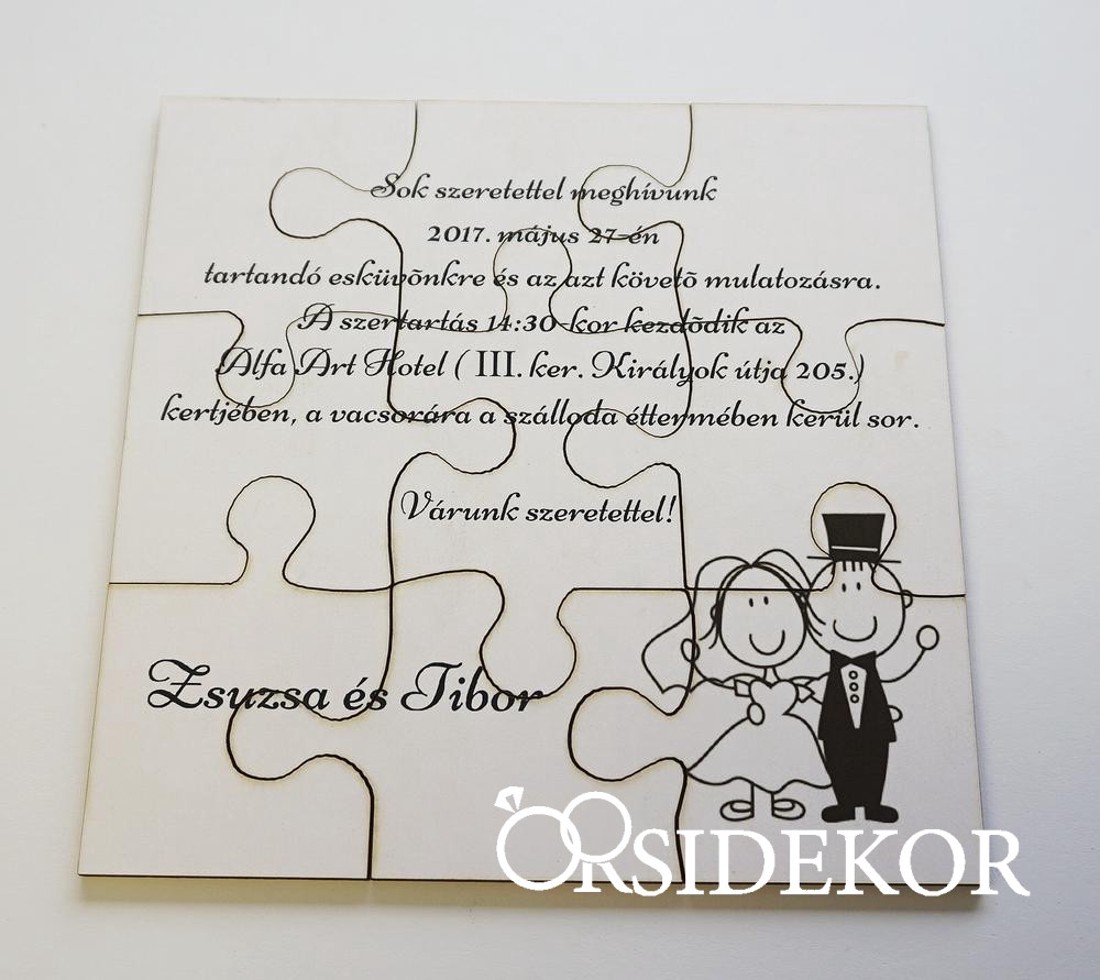 Sok szeretettel meghívunk
2017. május 27-én
tartandó esküvõnkre és az azt követõ mulatozásra.
A szertartás 14:30-kor kezdõdik az
Alfa Art Hotel ( III. ker. Királyok útja 205.)
kertjében, a vacsorára a szálloda éttermében kerül sor.
Várunk szeretettel!
Zsuzsa és Tibor
ORSIDEKOR